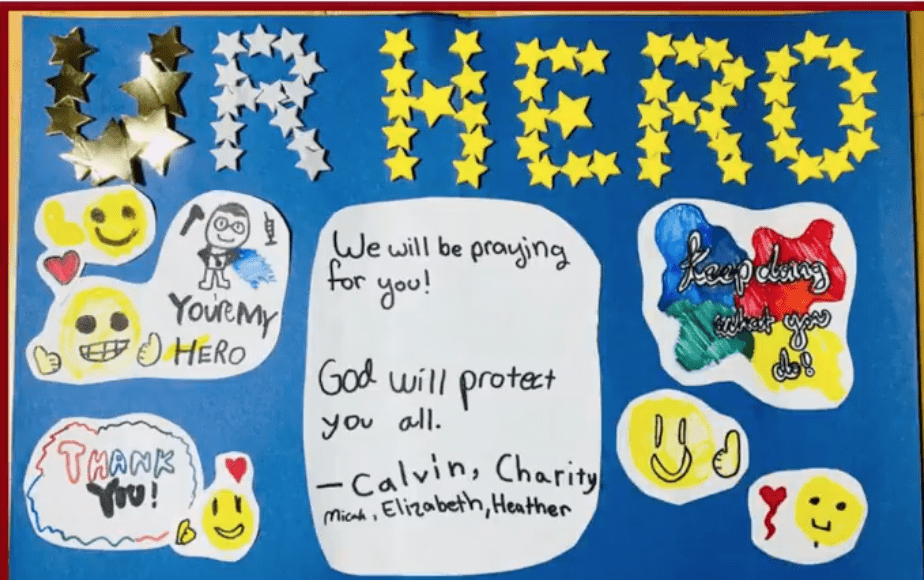 UR HERO
YOU'RE MY
HERO
We will be praying
for you!
God will protect
you all.
- Calvin, Charity
Micah, Elizabeth, Heather
Keep doing
what you
do!
THANK
YOU!